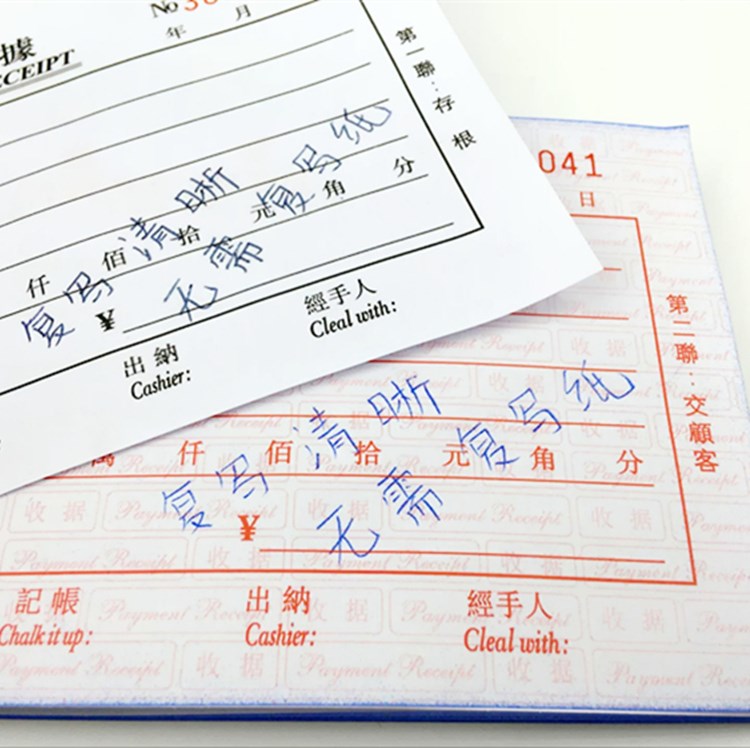 No 30
據
RECEIPT
年 月
第一聯：存根
清晰 复写纸
仟 佰 拾 元 角 分
复写 无需
¥
出納 經手人
Cashier: Cleal with:
041
日
第二聯：交顧客
清晰 复写纸
萬 仟 佰 拾 元 角 分
复写 无需
¥
記帳 出納 經手人
Chalk it up: Cashier: Cleal with:
收据 Payment Receipt